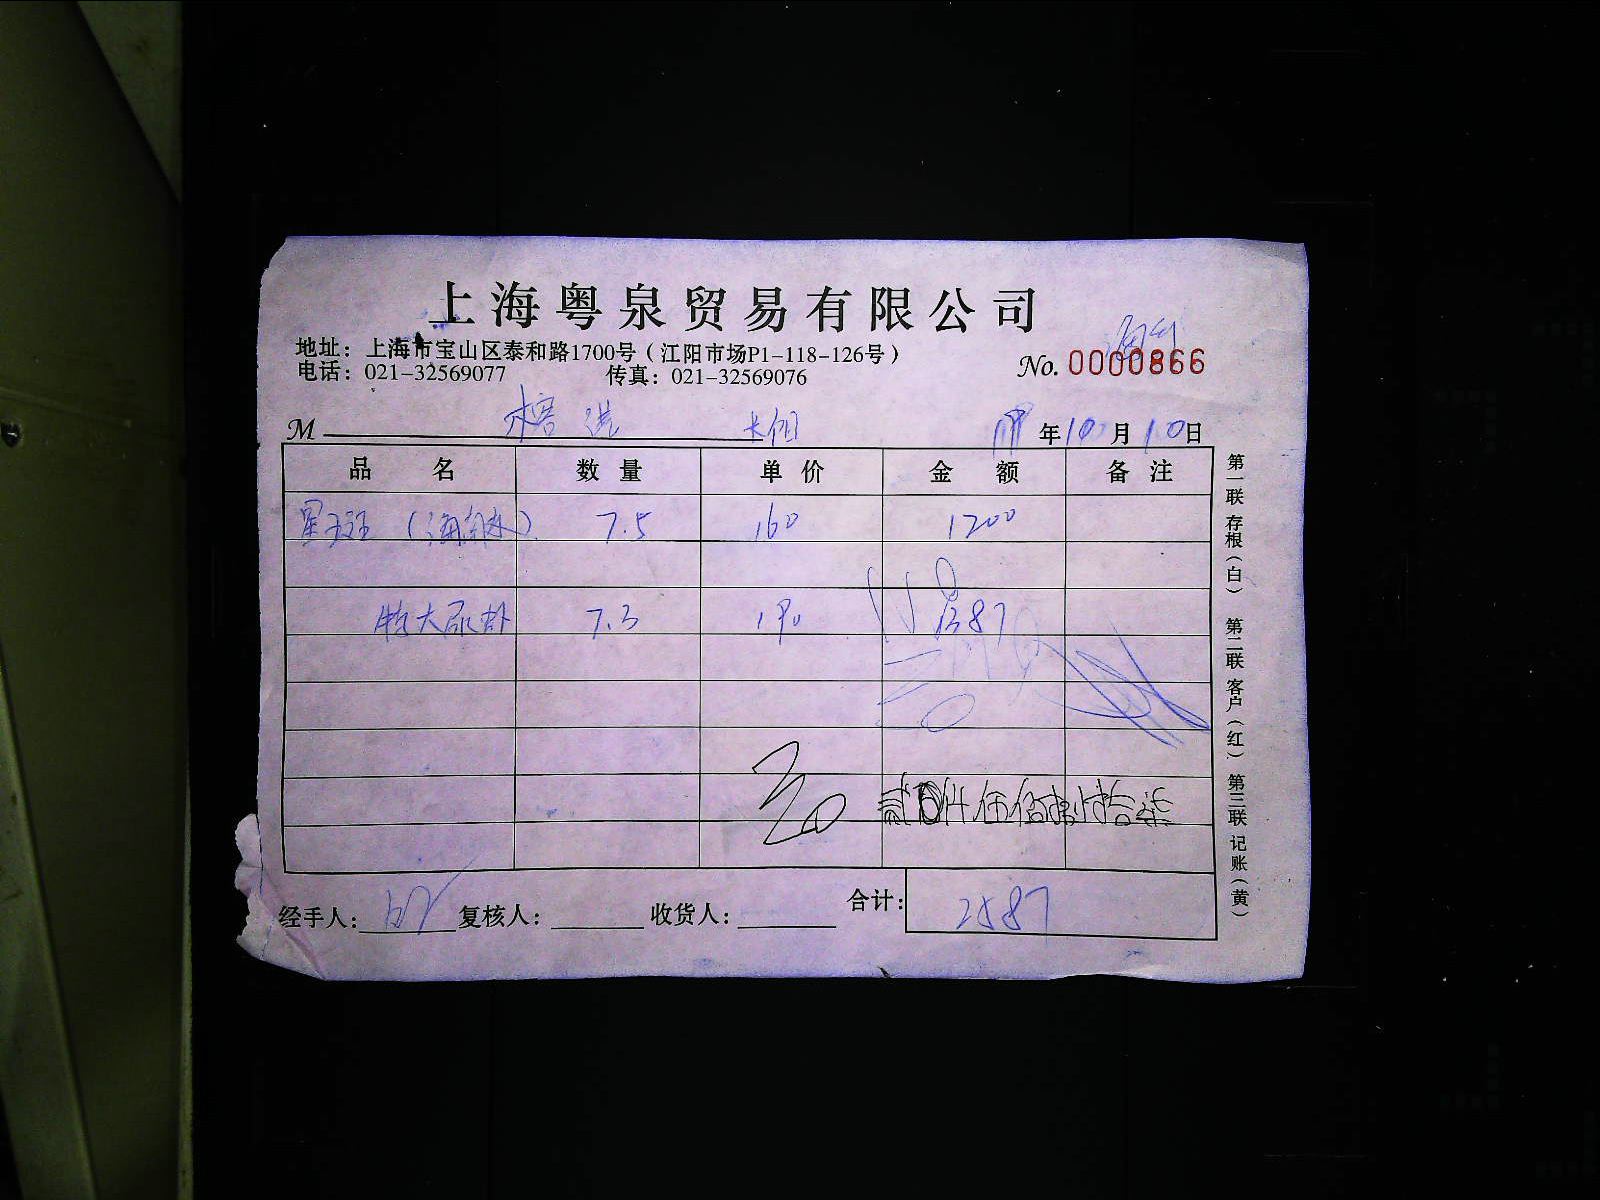 上海粤泉贸易有限公司
地址：上海市宝山区泰和路1700号（江阳市场P1-118-126号）
电话：021-32569077 传真：021-32569076
No. 0000866
M
年10月10日
品名 数量 单价 金额 备注
7.5 160 1200
特大尿 7.3 190 1387
30
贰仟伍佰捌拾柒
合计：2587
经手人： 复核人： 收货人：
第一联 存根（白） 第二联 客户（红） 第三联 记账（黄）